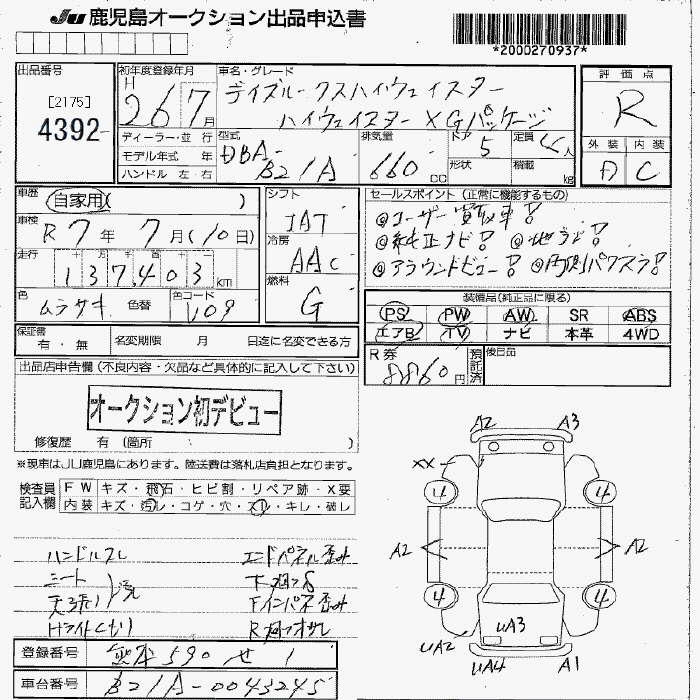 JU 鹿児島オークション出品申込書
*2000270937*
出品番号
[2175]
4392
初年度登録年月
H 26 7月
車名・グレード
デイズルークスハイウェイスター
ハイウェイスター X Gパッケージ
評価点
R
外装 内装
D C
ディーラー・並行
モデル年式 年
ハンドル 左・右
型式
DBA-
B21A
排気量
660 CC
ドア
5
形状
定員
人
積載
kg
車歴
自家用 ( )
車検
R7年 7月(10日)
走行
137,403 KM
色
ムラサキ 色替
色コード
シフト
IAT
冷房
AAC
燃料
G
セールスポイント (正常に機能するもの)
◎ユーザー買取車!
◎純正ナビ! ◎地デジ!
◎アラウンドビュー! ◎両側パワスラ!
装備品(純正品に限る)
PS PW AW SR ABS
エアB TV ナビ 本革 4WD
保証書
有・無
名変期限 月 日迄に名変できる方
R券
8860円
預託済
後日品
出品店申告欄 (不良内容・欠品など具体的に記入して下さい)
オークション初デビュー
修復歴 有 (箇所 )
※現車はJU鹿児島にあります。陸送費は落札店負担となります。
検査員
記入欄
FW キズ・飛石・ヒビ割・リペア跡・X要
内装 キズ・汚レ・コゲ・穴・スレ・キレ・破レ
ハンドルスレ
シート
天張り
汚
Hライトくもり
エンドパネル歪み
A2 A3
XX
4 4
A2 A2
4 4
UA3
UA2
UA4 A1
登録番号 熊本 590 せ 1
車台番号 B21A-0043245